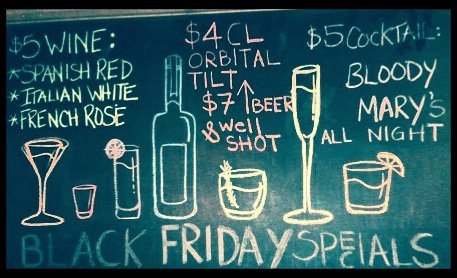 $5 WINE:
*SPANISH RED
*ITALIAN WHITE
*FRENCH ROSE
$4 CL
ORBITAL
TILT
$7 BEER
& Well
SHOT
$5 COCKTAIL:
BLOODY
MARY'S
ALL NIGHT
BLACK FRIDAY SPECIALS